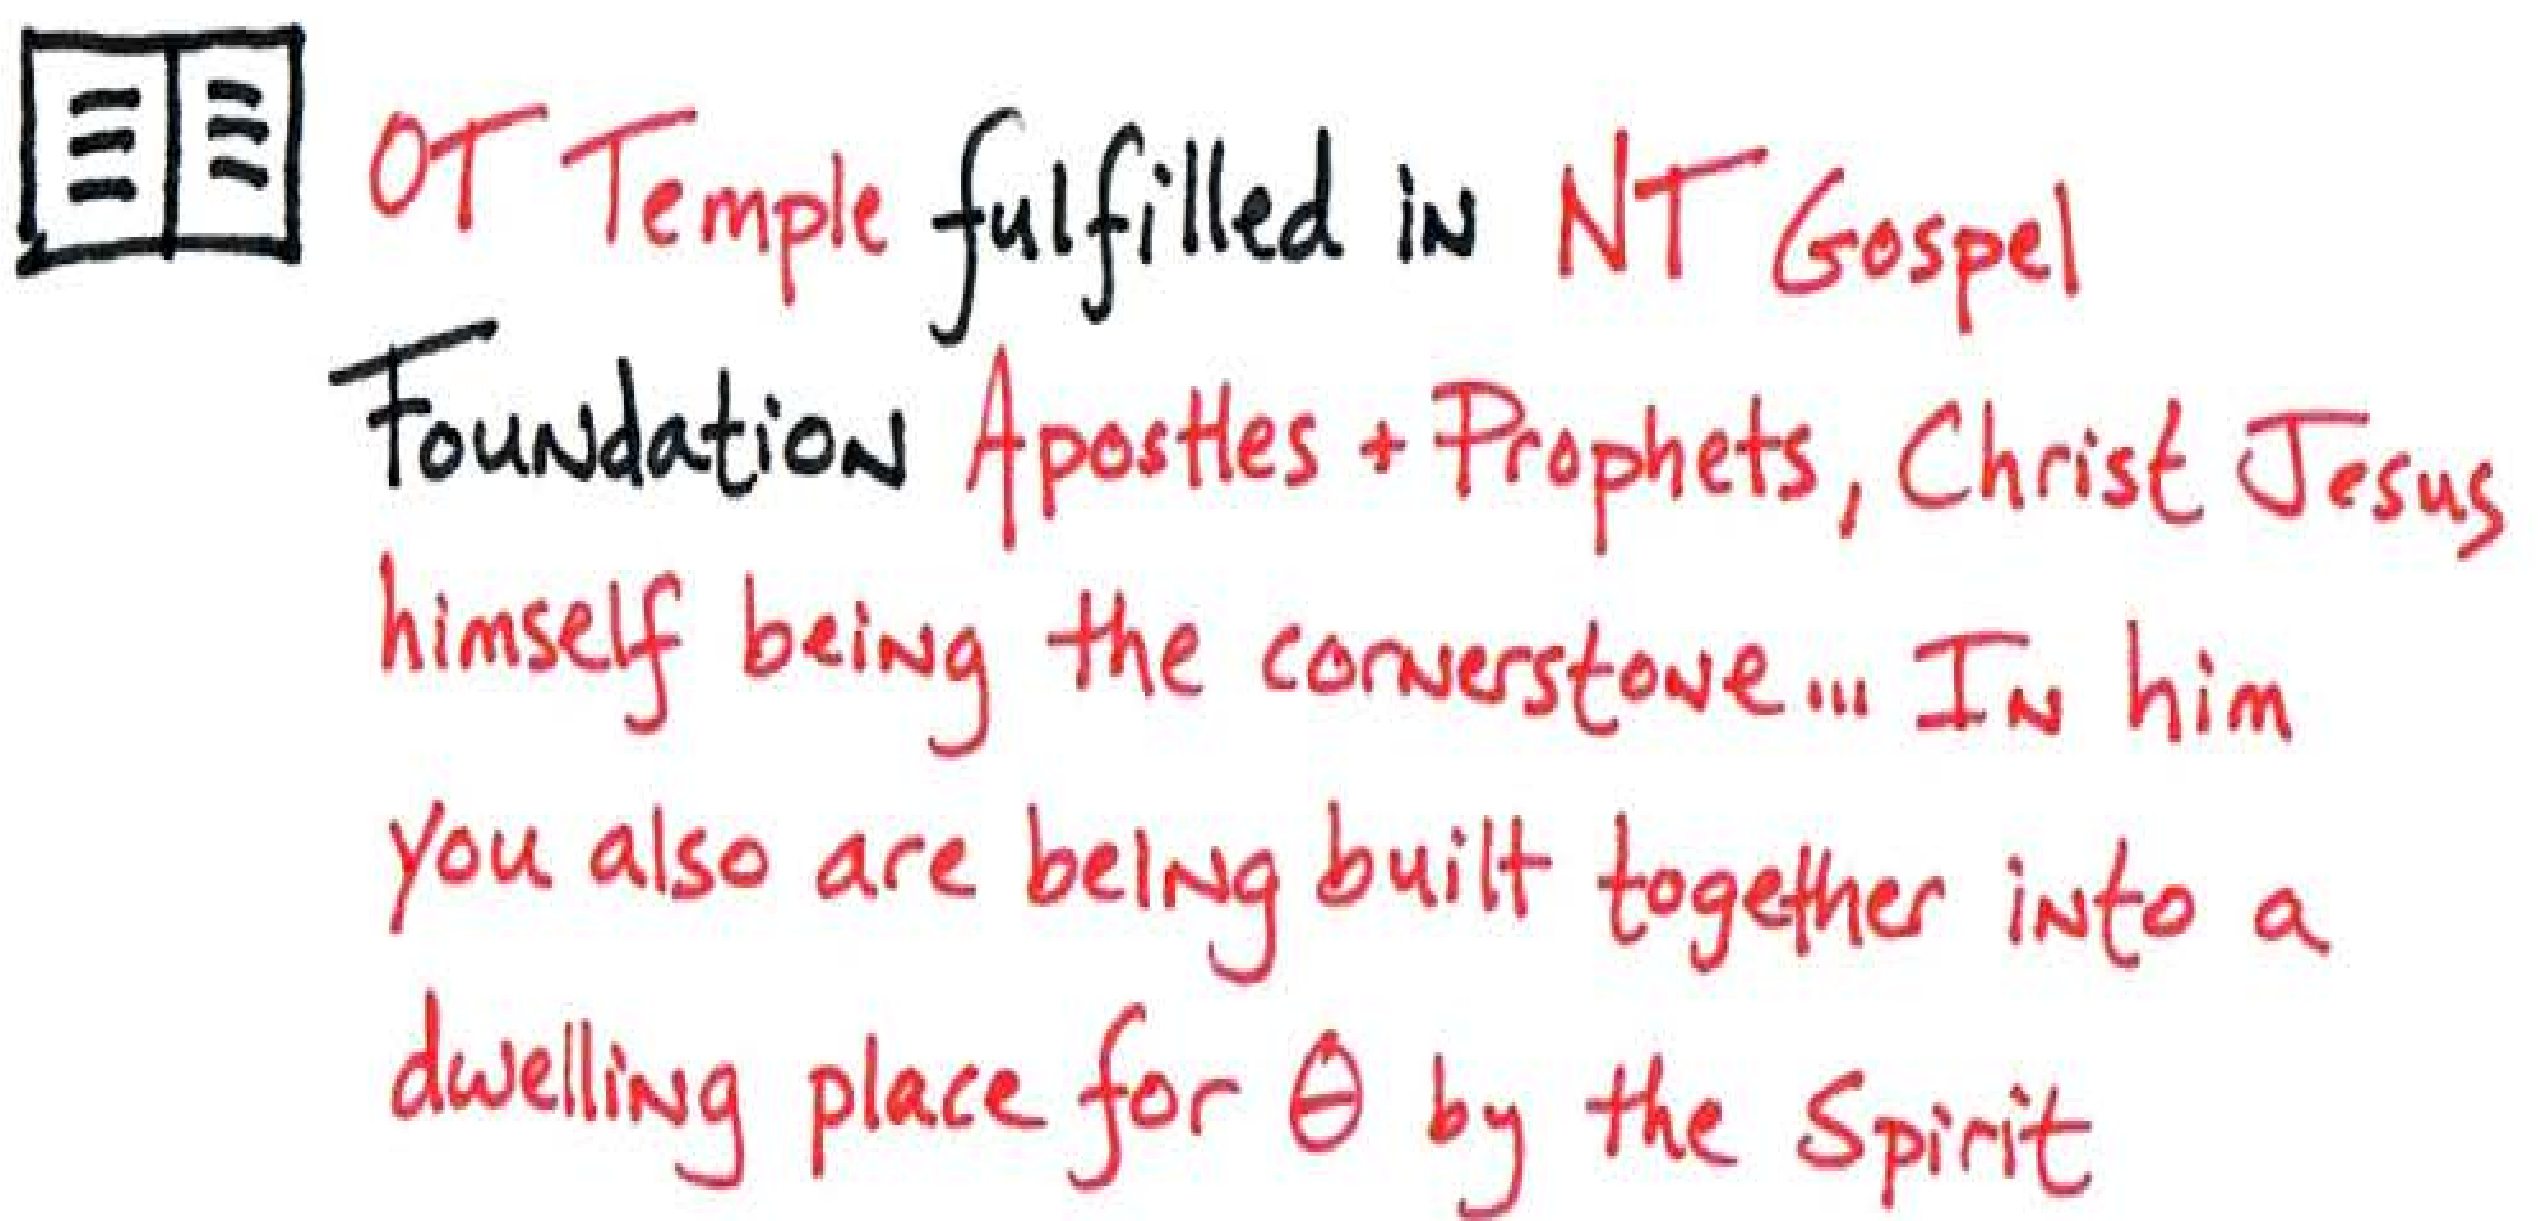 OT Temple fulfilled in NT Gospel
Foundation Apostles + Prophets, Christ Jesus
himself being the cornerstone... In him
you also are being built together into a
dwelling place for Θ by the Spirit